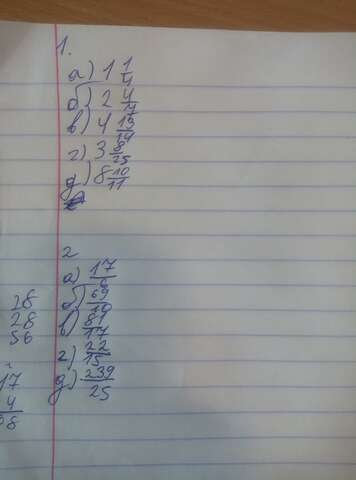 1.
а) 1 1/4
б) 2 4/7
в) 4 13/14
г) 3 8/25
д) 8 10/11
2
а) 17/6
б) 69/10
в) 81/17
г) 22/15
д) 239/25
28
28
56
17
4
68